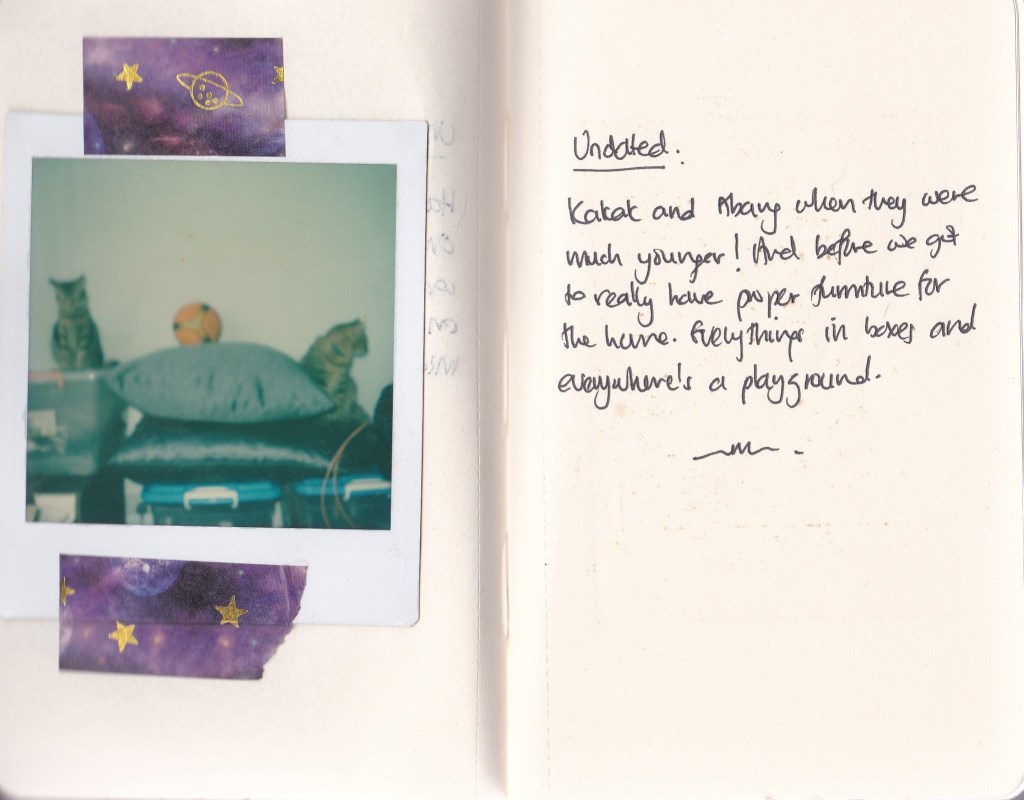 Undated.
Kakak and Abang when they were
much younger! And before we got
to really have proper furniture for
the home. Everythings in boxes and
everywhere's a playground.